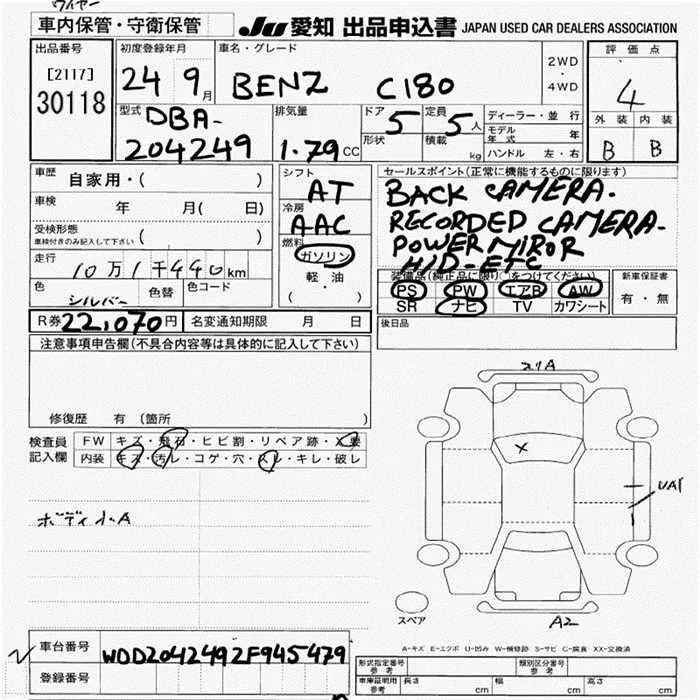 ワイヤー
車内保管・守衛保管
JU 愛知 出品申込書 JAPAN USED CAR DEALERS ASSOCIATION
出品番号
[2117]
30118
初度登録年月
24 9月
車名・グレード
BENZ C180
2WD
・
4WD
評価点
4
外装 内装
B B
型式
DBA-
204249
排気量
1.79 CC
ドア 5
形状
定員 5 人
積載 kg
ディーラー・並行
モデル年式 年
ハンドル 左・右
車歴
自家用・( )
車検
年 月( 日)
受検形態
車検付きのみ記入して下さい ( )
走行
10万1千440km
色
シルバー
色替
色コード
シフト
AT
冷房
AAC
燃料
ガソリン
軽・油
( )
セールスポイント(正常に機能するものに限ります)
BACK CAMERA.
RECORDED CAMERA.
POWER MIROR
HID-ETC
装備品(純正品に限り○をつけてください)
PS PW エアB AW
SR ナビ TV カワシート
新車保証書
有・無
R券 22,070円 名変通知期限 月 日
後日品
注意事項申告欄(不具合内容等は具体的に記入して下さい)
修復歴 有 (箇所 )
検査員
記入欄
FW キズ・飛石・ヒビ割・リペア跡・X要
内装 キズ・汚レ・コゲ・穴・スレ・キレ・破レ
ボディ小A
X
UA1
A2
スペア
A-キズ E-エクボ U-凹み W-補修跡 S-サビ C-腐食 XX-交換済
車台番号
WDD2042492F945479
登録番号
形式指定番号
参考
類別区分番号
参考
車庫証明用
参考
長さ cm 幅 cm 高さ cm